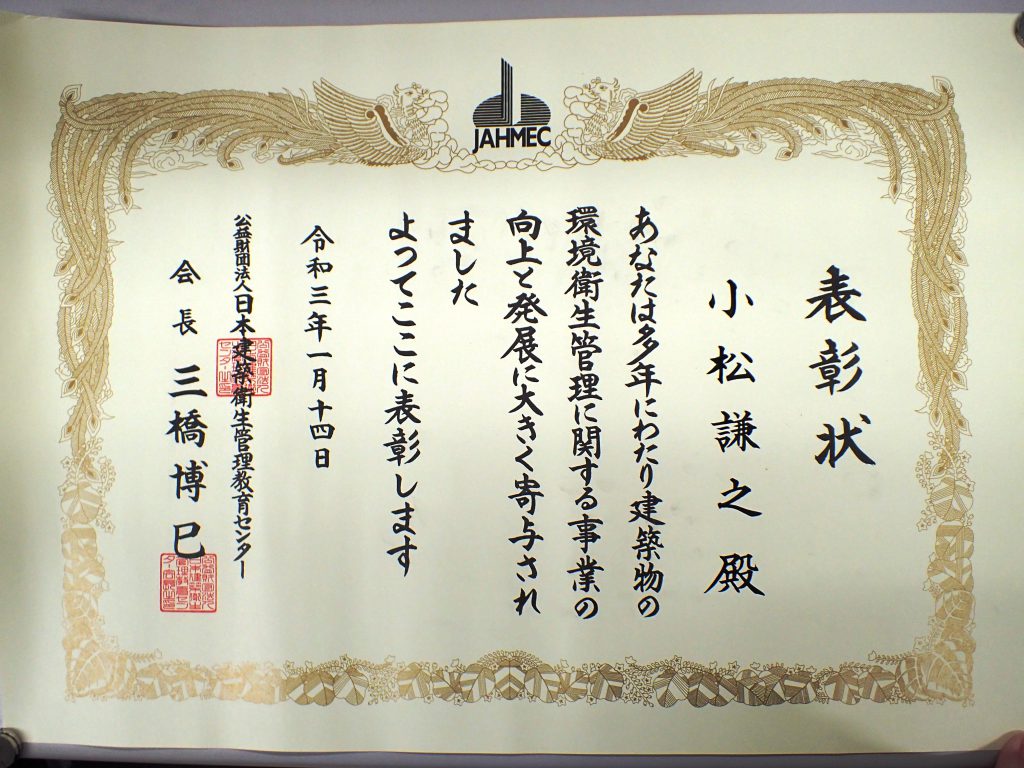 JAHMEC
表彰状
小松謙之殿
あなたは多年にわたり建築物の
環境衛生管理に関する事業の
向上と発展に大きく寄与され
ました
よってここに表彰します
令和三年一月十四日
公益財団法人日本建築衛生管理教育センター
会長 三橋博巳